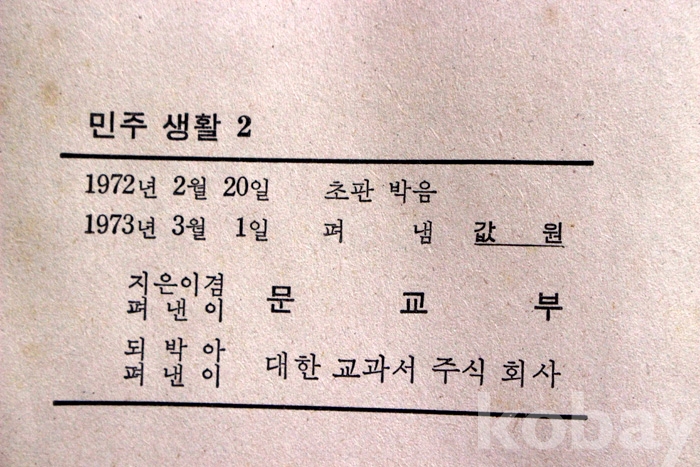 민주 생활 2
1972년 2월 20일 초판 박음
1973년 3월 1일 펴 냄 값 원
지은이겸
펴 낸 이
문 교 부
되 박 아
펴 낸 이
대한 교과서 주식 회사
kobay